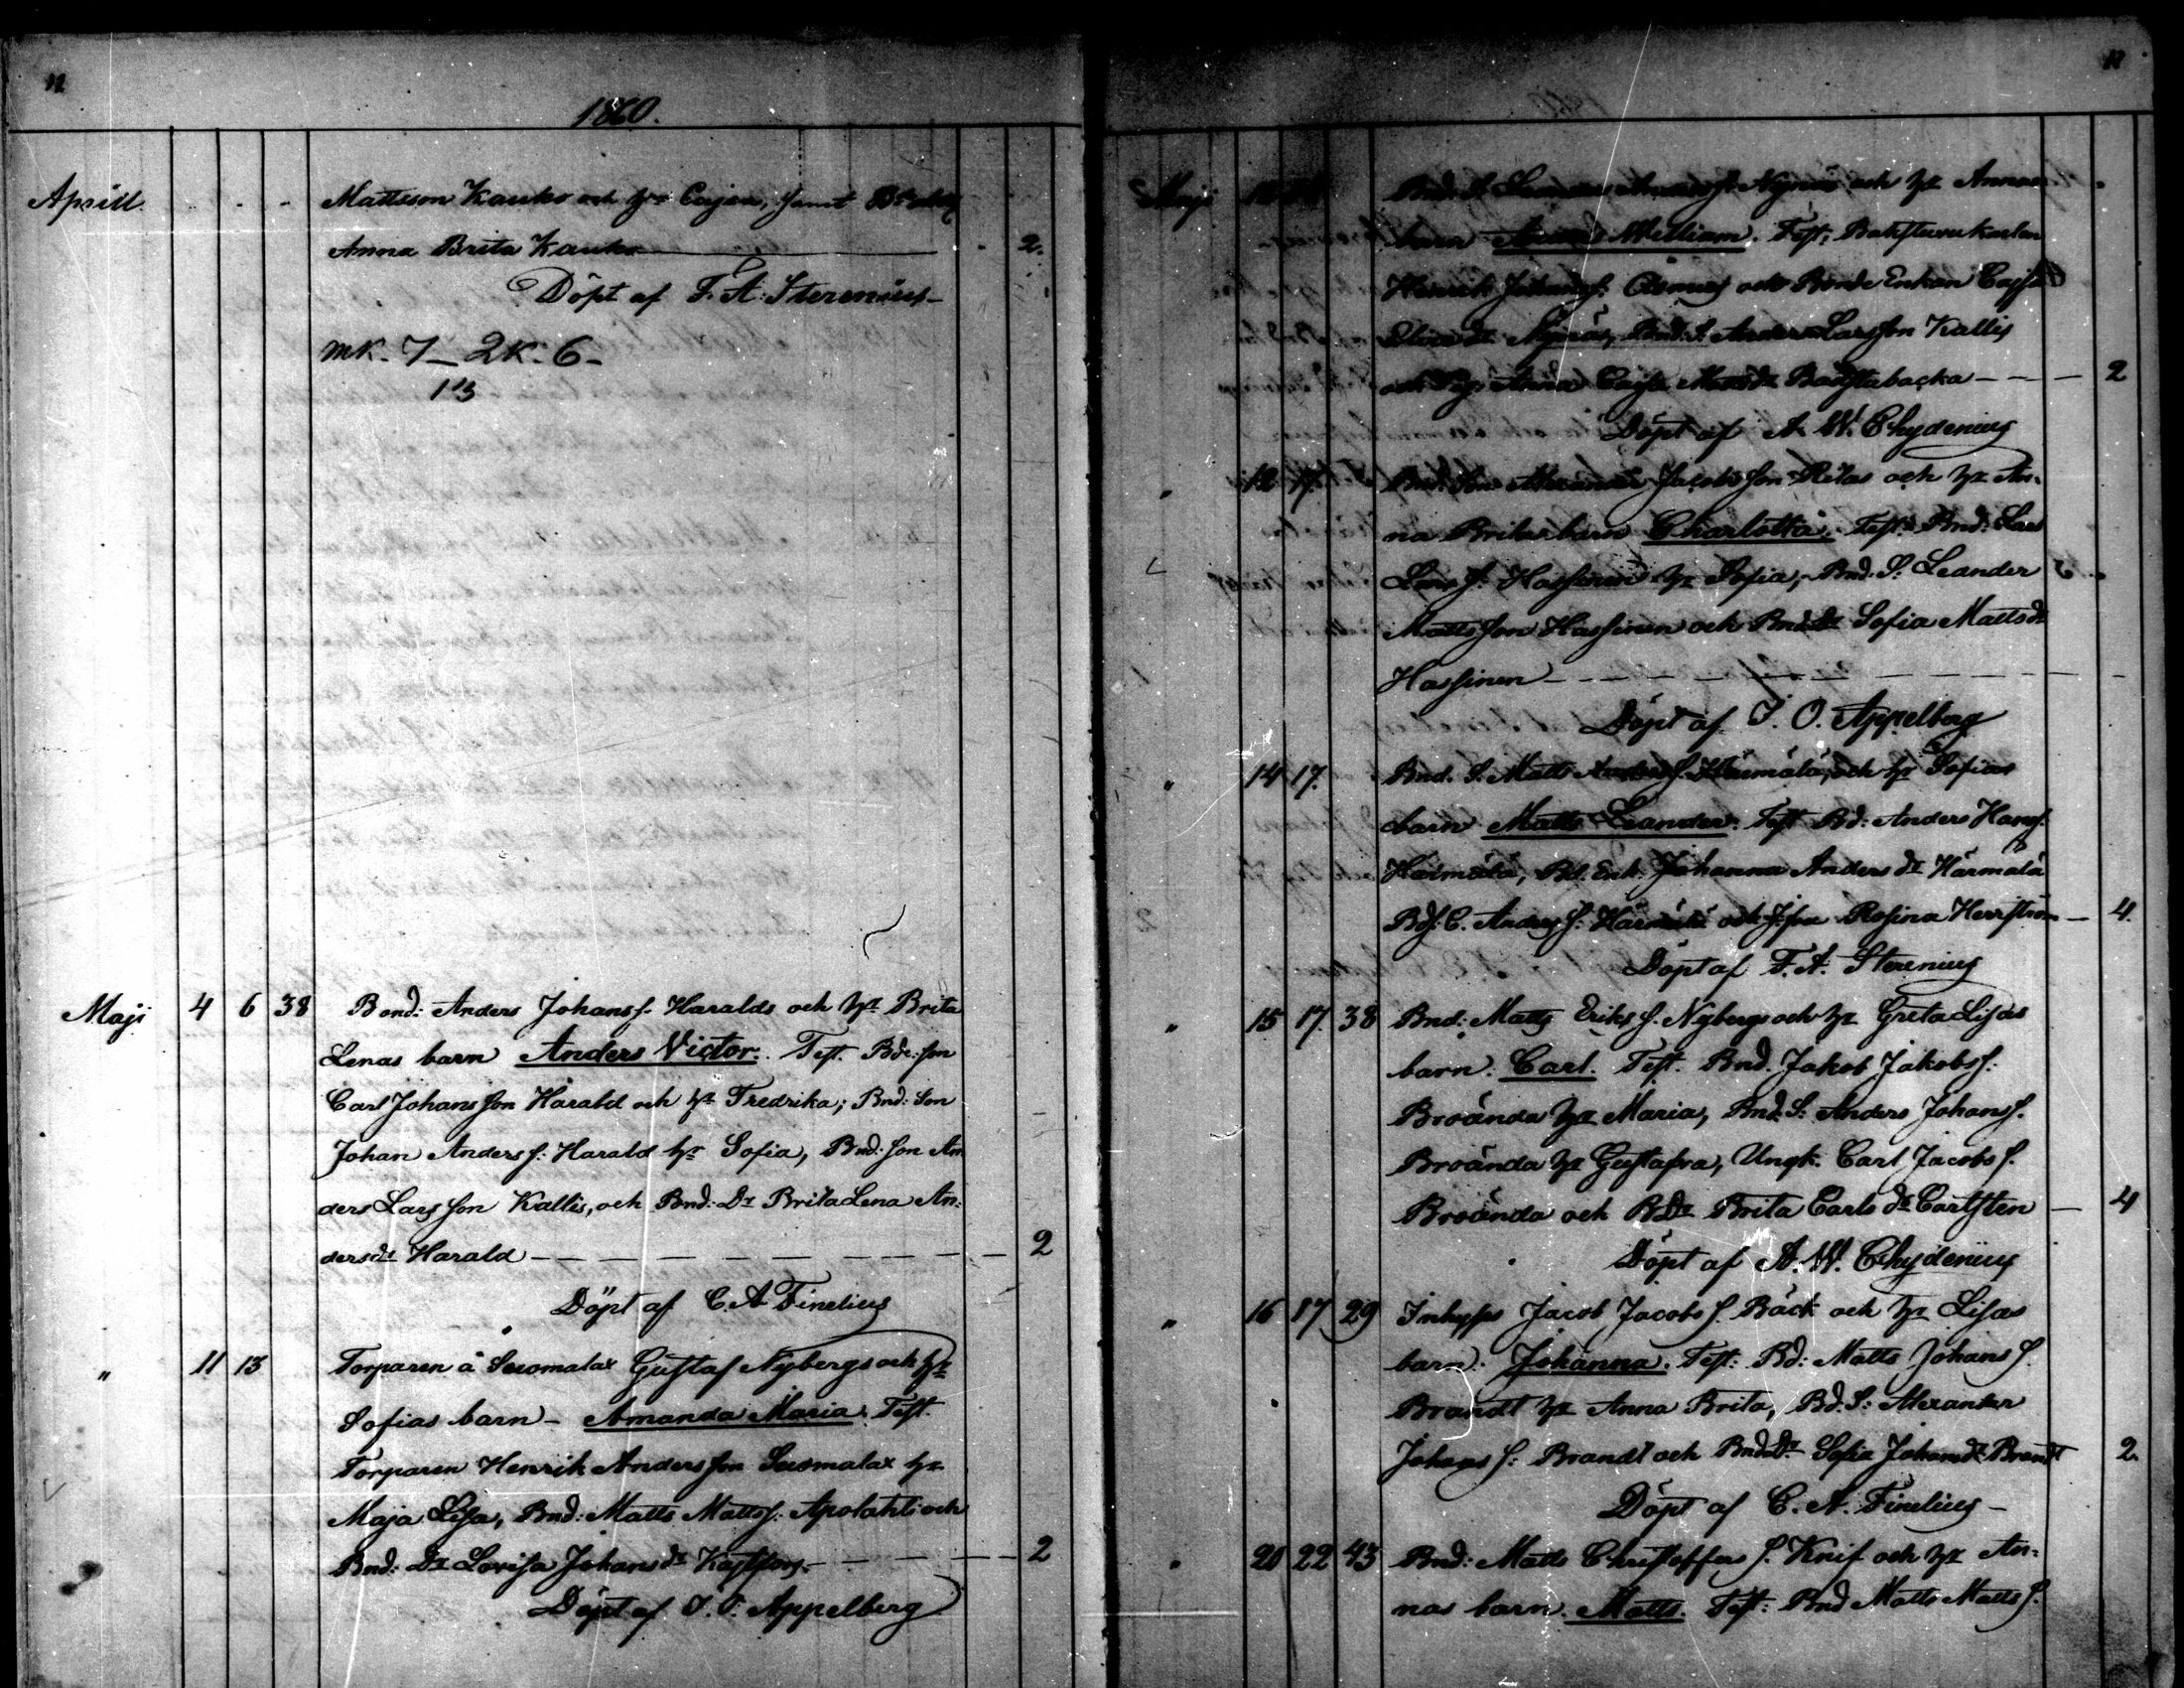 12
1860.
Aprill
Mattsson Kauko och hu Cajsa, samt
Anna Brita Kauko 2.
Döpt af F. A. Sterenius
mk. 7 - 2 k. 6 -
113
Maji 4 6 38 Bond: Anders Johans s. Haralds och hu Brita
Lenas barn Anders Victor. Test. Bde: son
Carl Johansson Harald och hu Fredrika; Bnd: Son
Johan Anders s: Harald hu Sofia, Bnd: son An
ders Larsson Kallis, och Bnd: Dr Brita Lena An:
dersdr Harald 2
Döpt af C. A. Finelius
" 11 13 Torparen å Suomalax Gustaf Nybergs och hu
Sofias barn - Amanda Maria. Test.
Torparen Henrik Andersson Suomalax hu
Maja Lisa, Bnd: Matts Matts s. Apolahti och
Bnd: Dr Lovisa Johansdr 2
Döpt af J. O. Appelberg
12
Maji Bnd. S. Nynäs och hu Annas
barn William. Test: Backstuvukarlen
Henrik och Bonde Enkan Cajsa
Nynäs, Bnd: S. Anders Larsson Kallis
och Pig. Anna Cajsa Backstabacka 2
Döpt af A. W. Chydenius
" 12 17 Bnd: Son Alexander Jacobsson Ritas och hu An:
na Britas barn Charlotta. Test: Bnd: Lars
Lars s: Hassinen hu Sofia, Bnd: S: Leander
Mattsson Hassinen och Bnd Dr Sofia Mattsdr
Hassinen
Döpt af J. O. Appelberg
" 14 17. Bnd. S. Matts Anders s. Härmälä, och hu Sofias
barn Matts Leander. Test Bd: Anders Hans s.
Härmälä, Bd. Enk. Johanna Anders dr Härmälä
Bds. C. Anders s: Härmälä och Jfru Rosina Herrström 4.
Döpt af F. A. Sterenius
" 15 17. 38 Bnd: Matts Eriks s. Nybergs och hu Greta Lisas
barn. Carl. Test. Bnd. Jakob Jakobs s.
Broända hu Maria, Bnd. S: Anders Johans s.
Broända hu Gustafva, Ungk. Carl Jacobs s.
Broända och B Dr Brita Carls dr Carlsten 4
Döpt af A. W. Chydenius
" 16 17 29 Inhyses Jacob Jacobs s. Bäck och hu Lisas
barn: Johanna. Test: Bd: Matts Johans s.
Brandt hu Anna Brita, Bd. S: Alexander
Johans s: Brandt och Bnd Dr. Sofia Johansdr Brandt 2.
Döpt af C. A. Finelius
" 20 22 43 Bnd: Matts Christoffers s. Knif och hu An:
nas barn. Matts. Test: Bnd Matts Matts s.